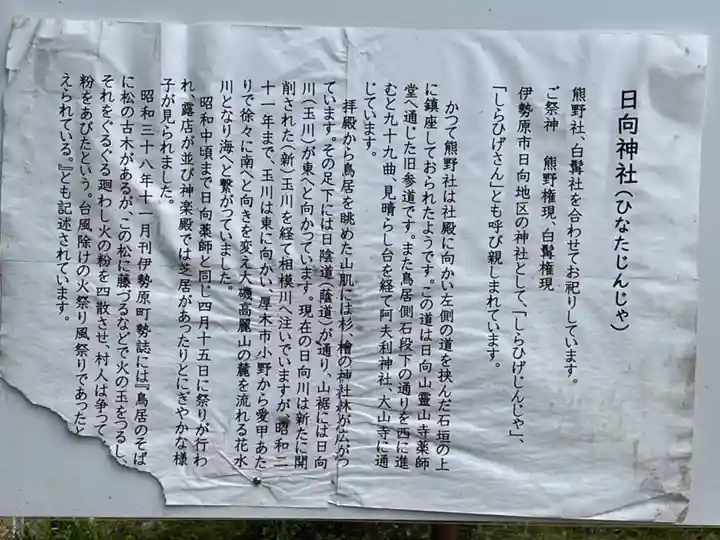 日向神社(ひなたじんじゃ)
熊野社、白髯社を合わせてお祀りしています。
ご祭神 熊野権現、白髯権現
伊勢原市日向地区の神社として、「しらひげじんじゃ」、
「しらひげさん」とも呼び親しまれています。
かつて熊野社は社殿に向かい左側の道を挟んだ石垣の上
に鎮座しておられたようです。この道は日向山霊山寺薬師
堂へ通じた旧参道です。また鳥居側石段下の通りを西に進
むと九十九曲、見晴らし台を経て阿夫利神社、大山寺に通
じています。
拝殿から鳥居を眺めた山肌には杉、檜の神社林が広がっ
ています。その足下には日陰道(蔭道)が通り、山裾には日向
川(玉川)が東へと向かっています。現在の日向川は新たに開
削された(新)玉川を経て相模川へ注いでいますが、昭和二
十一年まで、玉川は東に向かい、厚木市小野から愛甲あた
りで徐々に南へと向きを変え大磯高麗山の麓を流れる花水
川となり海へと繋がっていました。
昭和中頃まで日向薬師と同じ四月十五日に祭りが行わ
れ、露店が並び神楽殿では芝居があったりとにぎやかな様
子が見られました。
昭和三十八年十一月刊伊勢原町勢誌には『鳥居のそば
に松の古木があるが、この松に藤づるなどで火の玉をつるし、
それをぐるぐる廻わし火の粉を四散させ、村人は争って
粉をあびたという。台風除けの火祭り風祭りであったい
えられている。』とも記述されています。